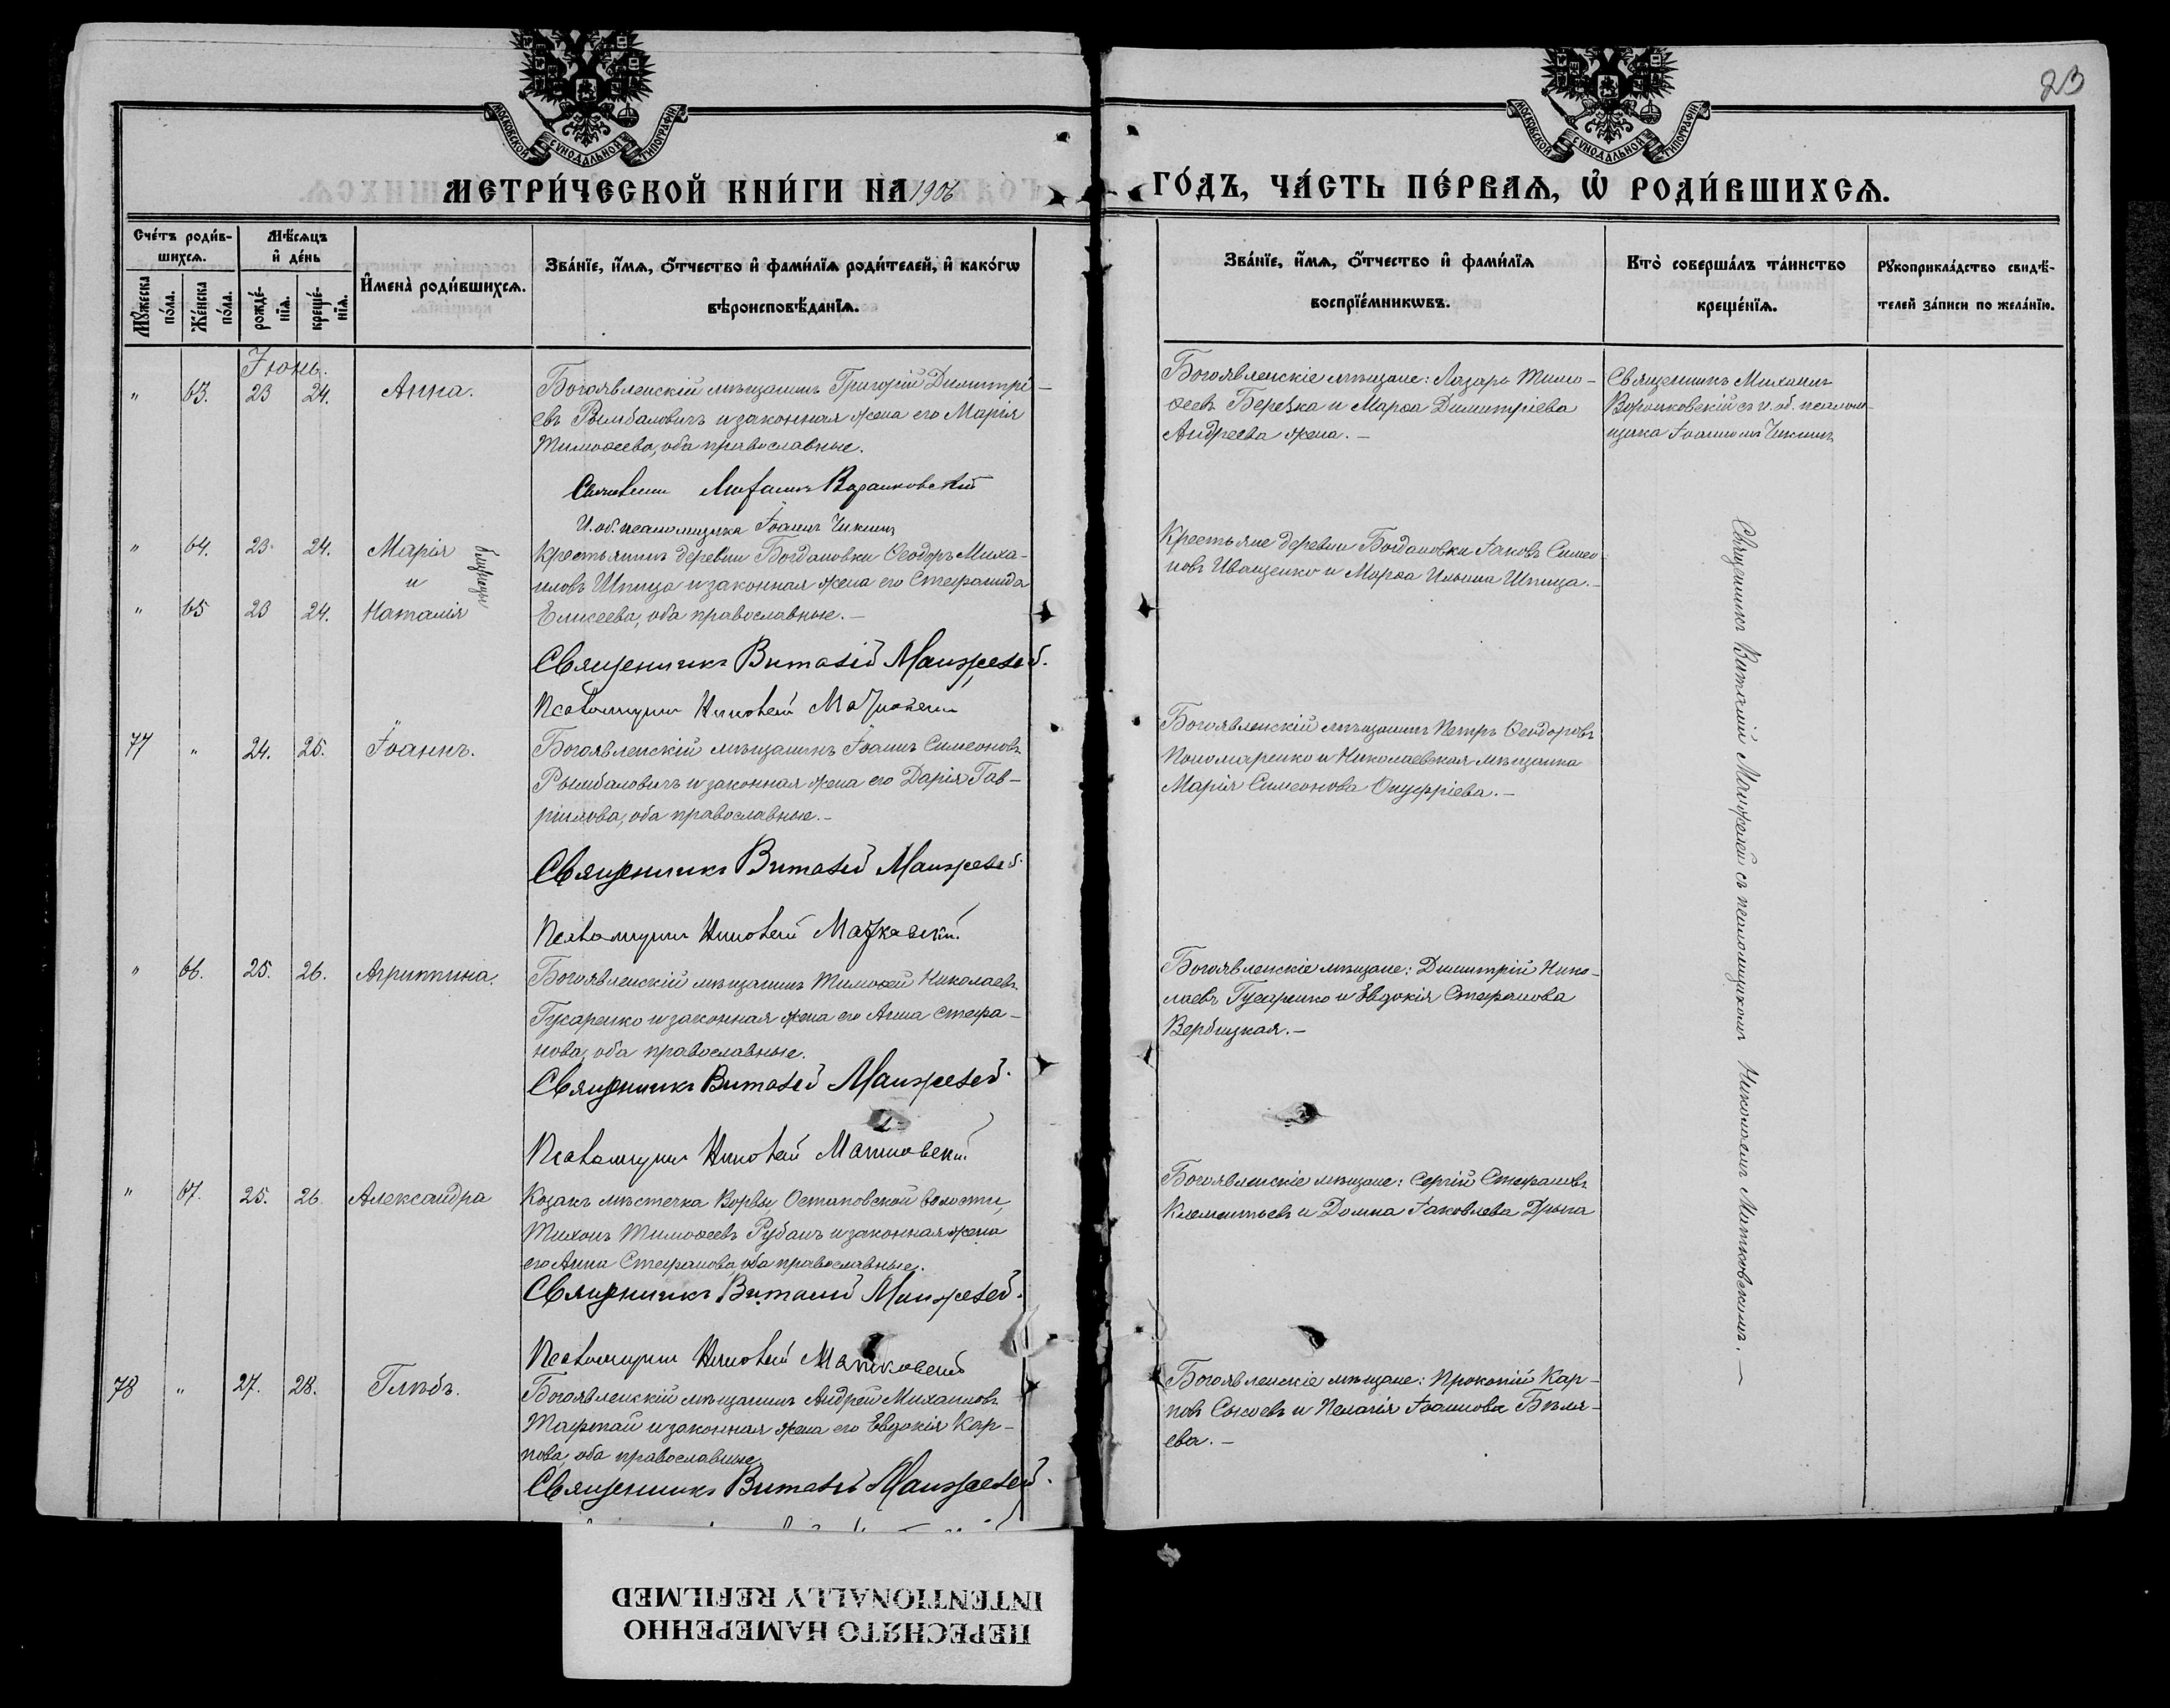 23
МОСКОВСКОЙ СѴНОДАЛЬНОЙ ТИПОГРАФІИ
МОСКОВСКОЙ СѴНОДАЛЬНОЙ ТИПОГРАФІИ
МЕТРИ́ЧЕСКОЙ КНИ́ГИ НА 1906
ГО́ДЪ, ЧА́СТЬ ПЕ́РВАѦ, Ѡ҆ РОДИ́ВШИХСѦ.
Сче́тъ роди́в-
шихсѧ.
Мꙋ́жеска
по́ла.
Же́нска
по́ла.
Мѣ́сѧцъ
и҆ де́нь
рожде́-
нїѧ.
креще́-
нїѧ.
И҆мена̀ роди́вшихсѧ.
Зва́нїе, и҆́мѧ, ѻ҆́тчество и҆ фами́лїѧ роди́телей, и҆ како́гѡ
вѣроисповѣ́данїѧ.
Зва́нїе, и҆́мѧ, ѻ҆́тчество и҆ фами́лїѧ
воспрїе́мникѡвъ.
Кто̀ соверша́лъ та́инство
креще́нїѧ.
Рꙋкоприкла́дство свидѣ́-
телей за́писи по жела́нїю.
Іюнь.
" 63. 23 24. Анна.
Богоявленскій мѣщанинъ Григорій Димитрі-
евъ Рымбаловичъ и законная жена его Марія
Тимоѳеева, оба православные.
Священникъ Михаилъ Воронковскій
И. об. псаломщика Іоаннъ Чикинъ
Богоявленскіе мѣщане: Лазарь Тимо-
ѳеевъ Березка и Марѳа Димитріева
Андреева жена.-
Священникъ Михаилъ
Воронковскій съ и. об. псалом-
щика Іоанномъ Чикинъ
" 64. 23. 24. Марія
и
" 65 23 24. Наталія
близнецы
Крестьянинъ деревни Богдановки Ѳеодоръ Миха-
иловъ Шпица и законная жена его Стефанида
Елисеева, оба православные.-
Священникъ Виталій Манжелей.
Псаломщикъ Николай Матковскій
Крестьяне деревни Богдановки Іаковъ Симео-
новъ Иващенко и Марѳа Ильина Шпица.-
77 " 24. 25. Іоаннъ.
Богоявленскій мѣщанинъ Іоаннъ Симеоновъ
Рымбаловичъ и законная жена его Дарія Гав-
ріилова, оба православные.-
Священникъ Виталій Манжелей
Псаломщикъ Николай Матковскій.
Богоявленскій мѣщанинъ Петръ Ѳеодоровъ
Пономаренко и Николаевская мѣщанка
Марія Симеонова Онуфріева.-
" 66. 25. 26. Агриппина.
Богоявленскій мѣщанинъ Тимоѳей Николаевъ
Гусаренко и законная жена его Анна Стефа-
нова, оба православные.
Священникъ Виталій Манжелей.
Псаломщикъ Николай Матковскій
Богоявленскіе мѣщане: Димитрій Нико-
лаевъ Гусаренко и Евдокія Стефанова
Вербицкая.-
" 67. 25. 26. Александра
Козакъ мѣстечка Ворвы, Остаповской волости,
Тихонъ Тимоѳеевъ Рубанъ и законная жена
его Анна Стефанова, оба православные.
Священникъ Виталій Манжелей.
Псаломщикъ Николай Матковскій
Богоявленскіе мѣщане: Сергій Стефановъ
Климентьевъ и Домна Іаковлева Дрыга
78 " 27. 28. Глѣбъ.
Богоявленскій мѣщанинъ Андрей Михаиловъ
Тафтай и законная жена его Евдокія Кар-
пова, оба православные.
Священникъ Виталій Манжелей.
Богоявленскіе мѣщане: Прокопій Кар-
повъ Сысоевъ и Пелагія Іоаннова Бѣля-
ева.-
Священникъ Виталій Манжелей съ псаломщикомъ Николаемъ Матковскимъ.-
ПЕРЕСНЯТО НАМЕРЕННО
INTENTIONALLY REFILMED